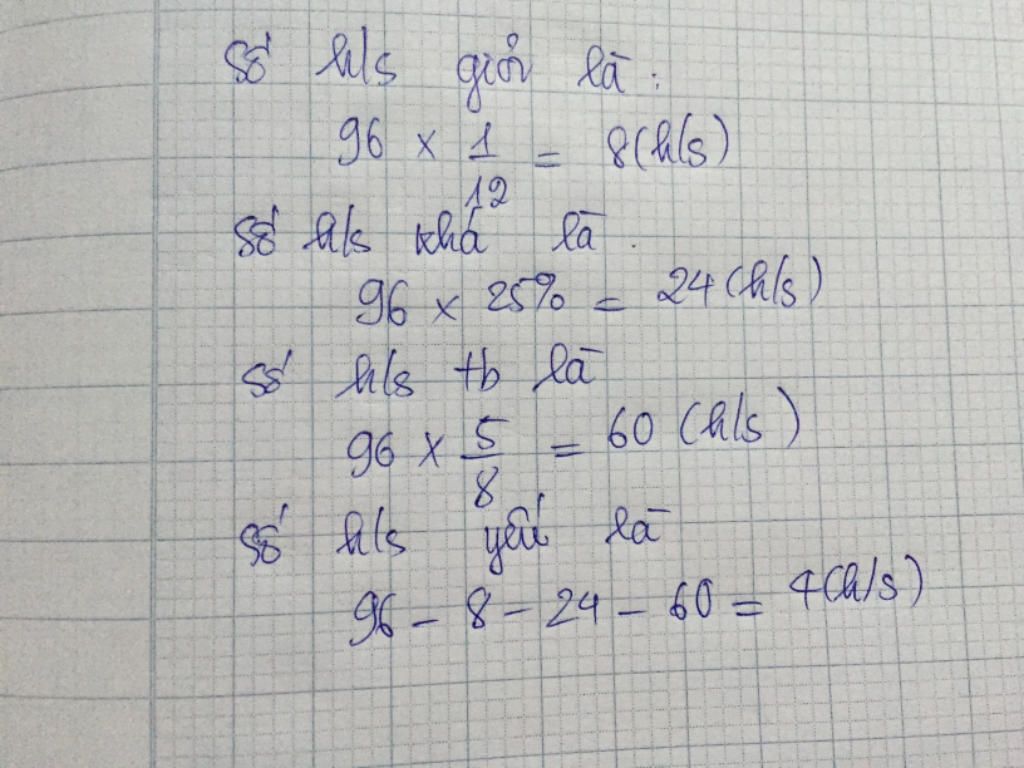 Số h/s giỏi là :
96 × 1/12 = 8 (h/s)
Số h/s khá là .
96 × 25% = 24 (h/s)
Số h/s tb là
96 × 5/8 = 60 (h/s)
Số h/s yếu là
96 - 8 - 24 - 60 = 4 (h/s)